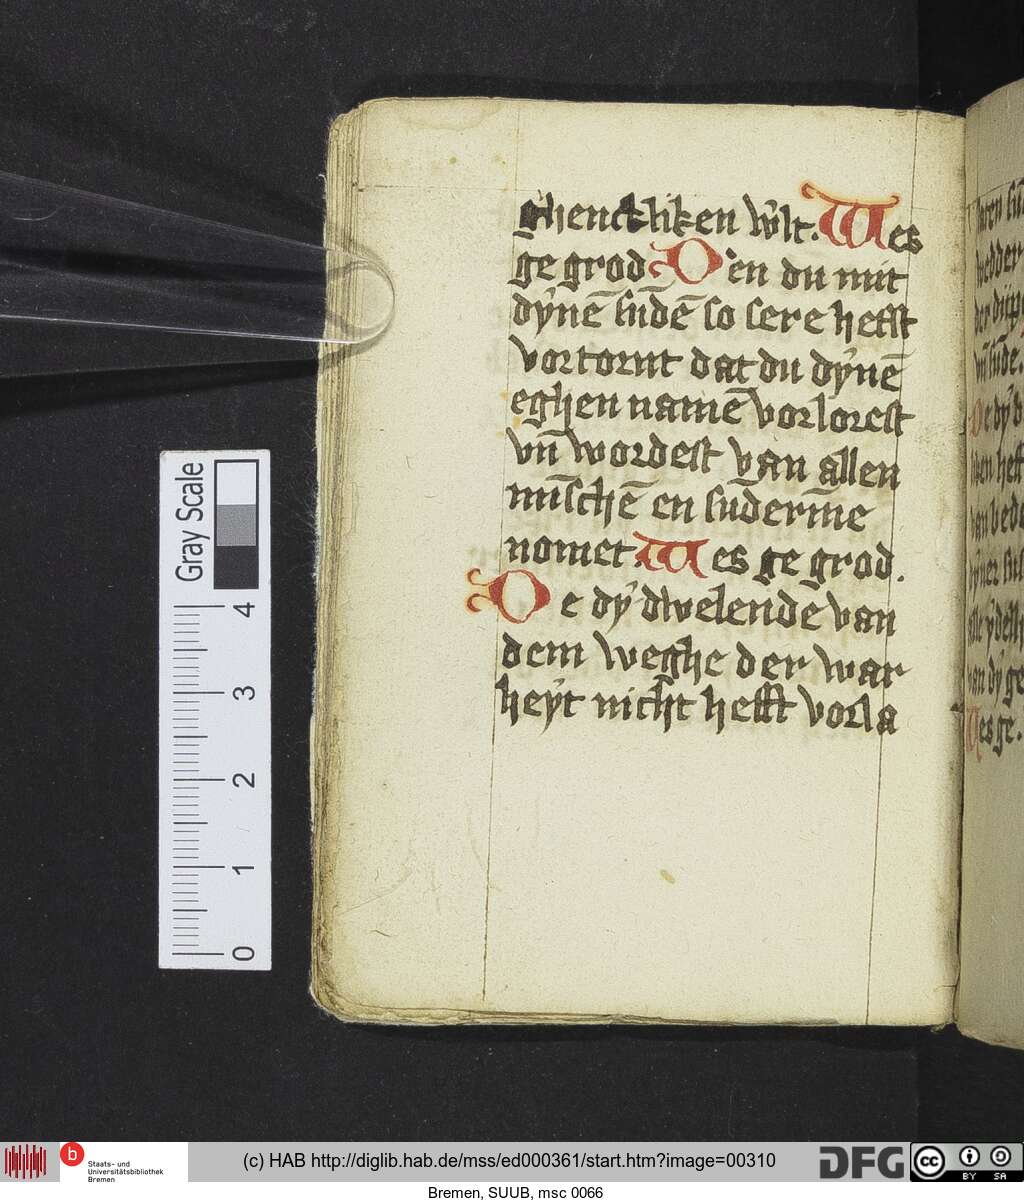 ghenckliken wͤlt. Wes
ge grod Den du mit
dẏnē sūdē so sere hefst
vortornt dat du dẏnē
eghen namē vorlorest
vn̄ wordest van allen
mīschē en sūderīne
nomet. Wes ge grod.
De dẏ dwelende van
dem weghe der war
heẏt nicht hefft vorla
Gray Scale
4
3
2
1
0
b
Staats- und
Universitätsbibliothek
Bremen
(c) HAB http://diglib.hab.de/mss/ed000361/start.htm?image=00310
DFG
cc
BY SA
Bremen, SUUB, msc 0066